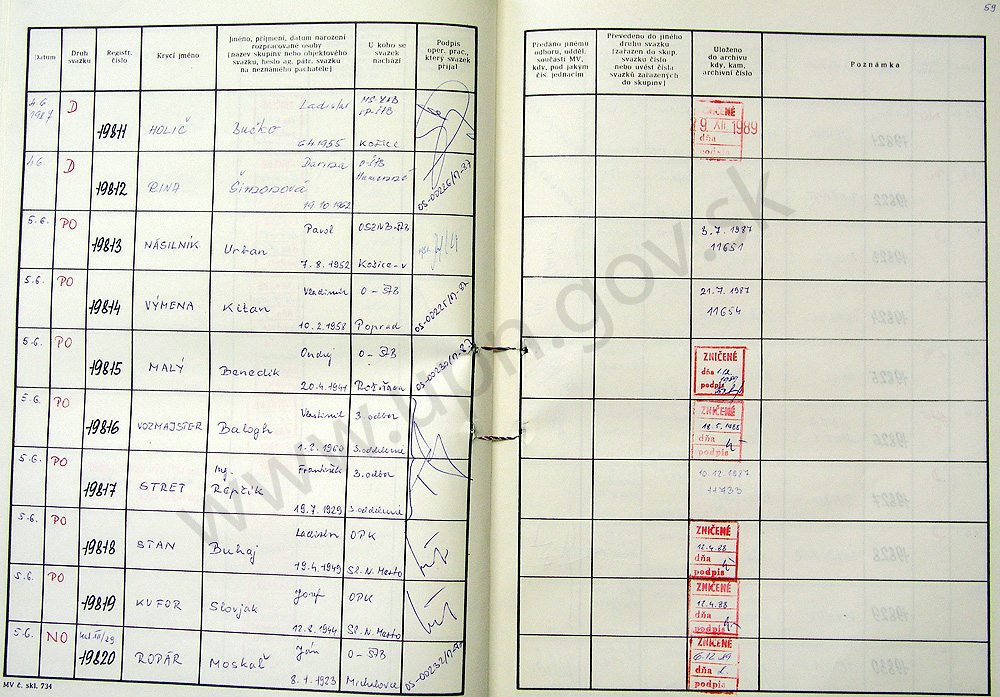 59
Datum
Druh svazku
Registr. číslo
Krycí jméno
Jméno, příjmení, datum narození
rozpracované osoby
(název skupiny nebo objektového
svazku, heslo ag. pátr. svazku
na neznámého pachatele)
U koho se
svazek
nachází
Podpis
oper. prac.,
který svazek
přijal
Předáno jinému
odboru, odděl.
součásti MV,
kdy, pod jakým
čís. jednacím
Převedeno do jiného
druhu svazku
(zařazen do skup.
svazku číslo
nebo uvést čísla
svazků zařazených
do skupiny)
Uloženo
do archivu
kdy, kam,
archivní číslo
Poznámka
4.6. 1987 D 19811 HOLIČ Ladislav Bučko 6.4.1955 Košice
ZNIČENÉ
19. XII. 1989
dňa
podpis
4.6. D 19812 RINA Darina Šimonová 19.10.1962 Humenné
5.6. PO 19813 NÁSILNÍK Pavol Urban 7.8.1952 Košice-v
3.7.1987
11651
5.6. PO 19814 VÝMENA Vladimír Kitan 10.2.1958 Poprad
21.7.1987
11654
5.6. PO 19815 MALÝ Ondrej Benedik 20.4.1941
ZNIČENÉ
dňa
podpis
5.6. PO 19816 VOZMAJSTER Vlastimil Balogh 1.2.1960 3. odbor 3. oddelenie
ZNIČENÉ
18.5.1988
dňa
podpis
5.6. PO 19817 STRET Ing. František Repčík 19.7.1929 3. odbor 3. oddelenie
10.12.1987
11733
5.6. PO 19818 STAN Ladislav Buhaj 19.4.1949 OPK St. N. Mesto
ZNIČENÉ
12.4.88
dňa
podpis
5.6. PO 19819 KUFOR Jozef Slovjak 12.8.1944 OPK St. N. Mesto
ZNIČENÉ
12.4.88
dňa
podpis
5.6. NO 19820 ROPÁR Ján Moskaľ 8.1.1923 O-ŠtB Michalovce
ZNIČENÉ
dňa
podpis
MV č. skl. 734
www.upn.gov.sk